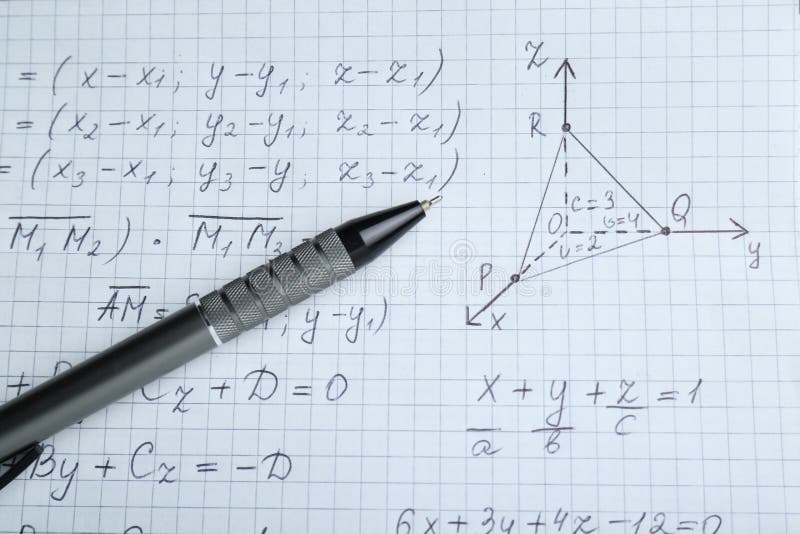 = (x - x1; y - y1; z - z1)
= (x2 - x1; y2 - y1; z2 - z1)
= (x3 - x1; y3 - y; z3 - z1)
M1 M2) · M1 M
AM = ; y - y1)
+ Cz + D = 0
+ By + Cz = -D
z
R
c = 3
O
в = 4
Q
y
υ = 2
P
x
x/a + y/в + z/c = 1
6x + 3y + 4z - 12 = 0
dreamstime